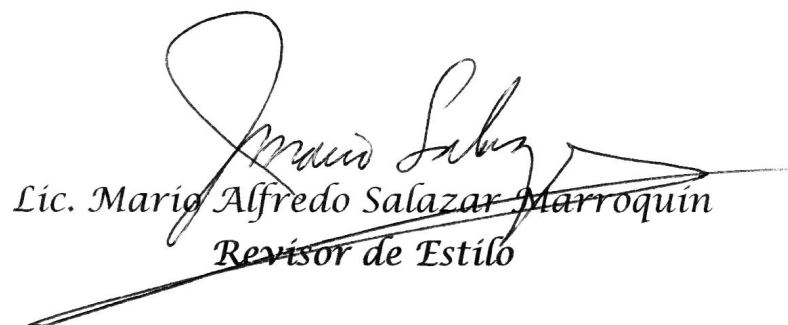 Mario Salaz
Lic. Mario Alfredo Salazar Marroquín
Revisor de Estilo